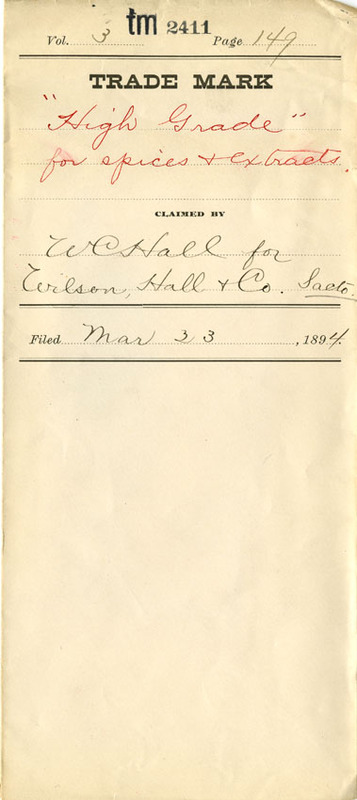 tm 2411
Vol. 3 Page 149
TRADE MARK
"High Grade"
for spices & extracts.
CLAIMED BY
W C Hall for
Wilson, Hall & Co. Sacto.
Filed Mar 23, 1894.